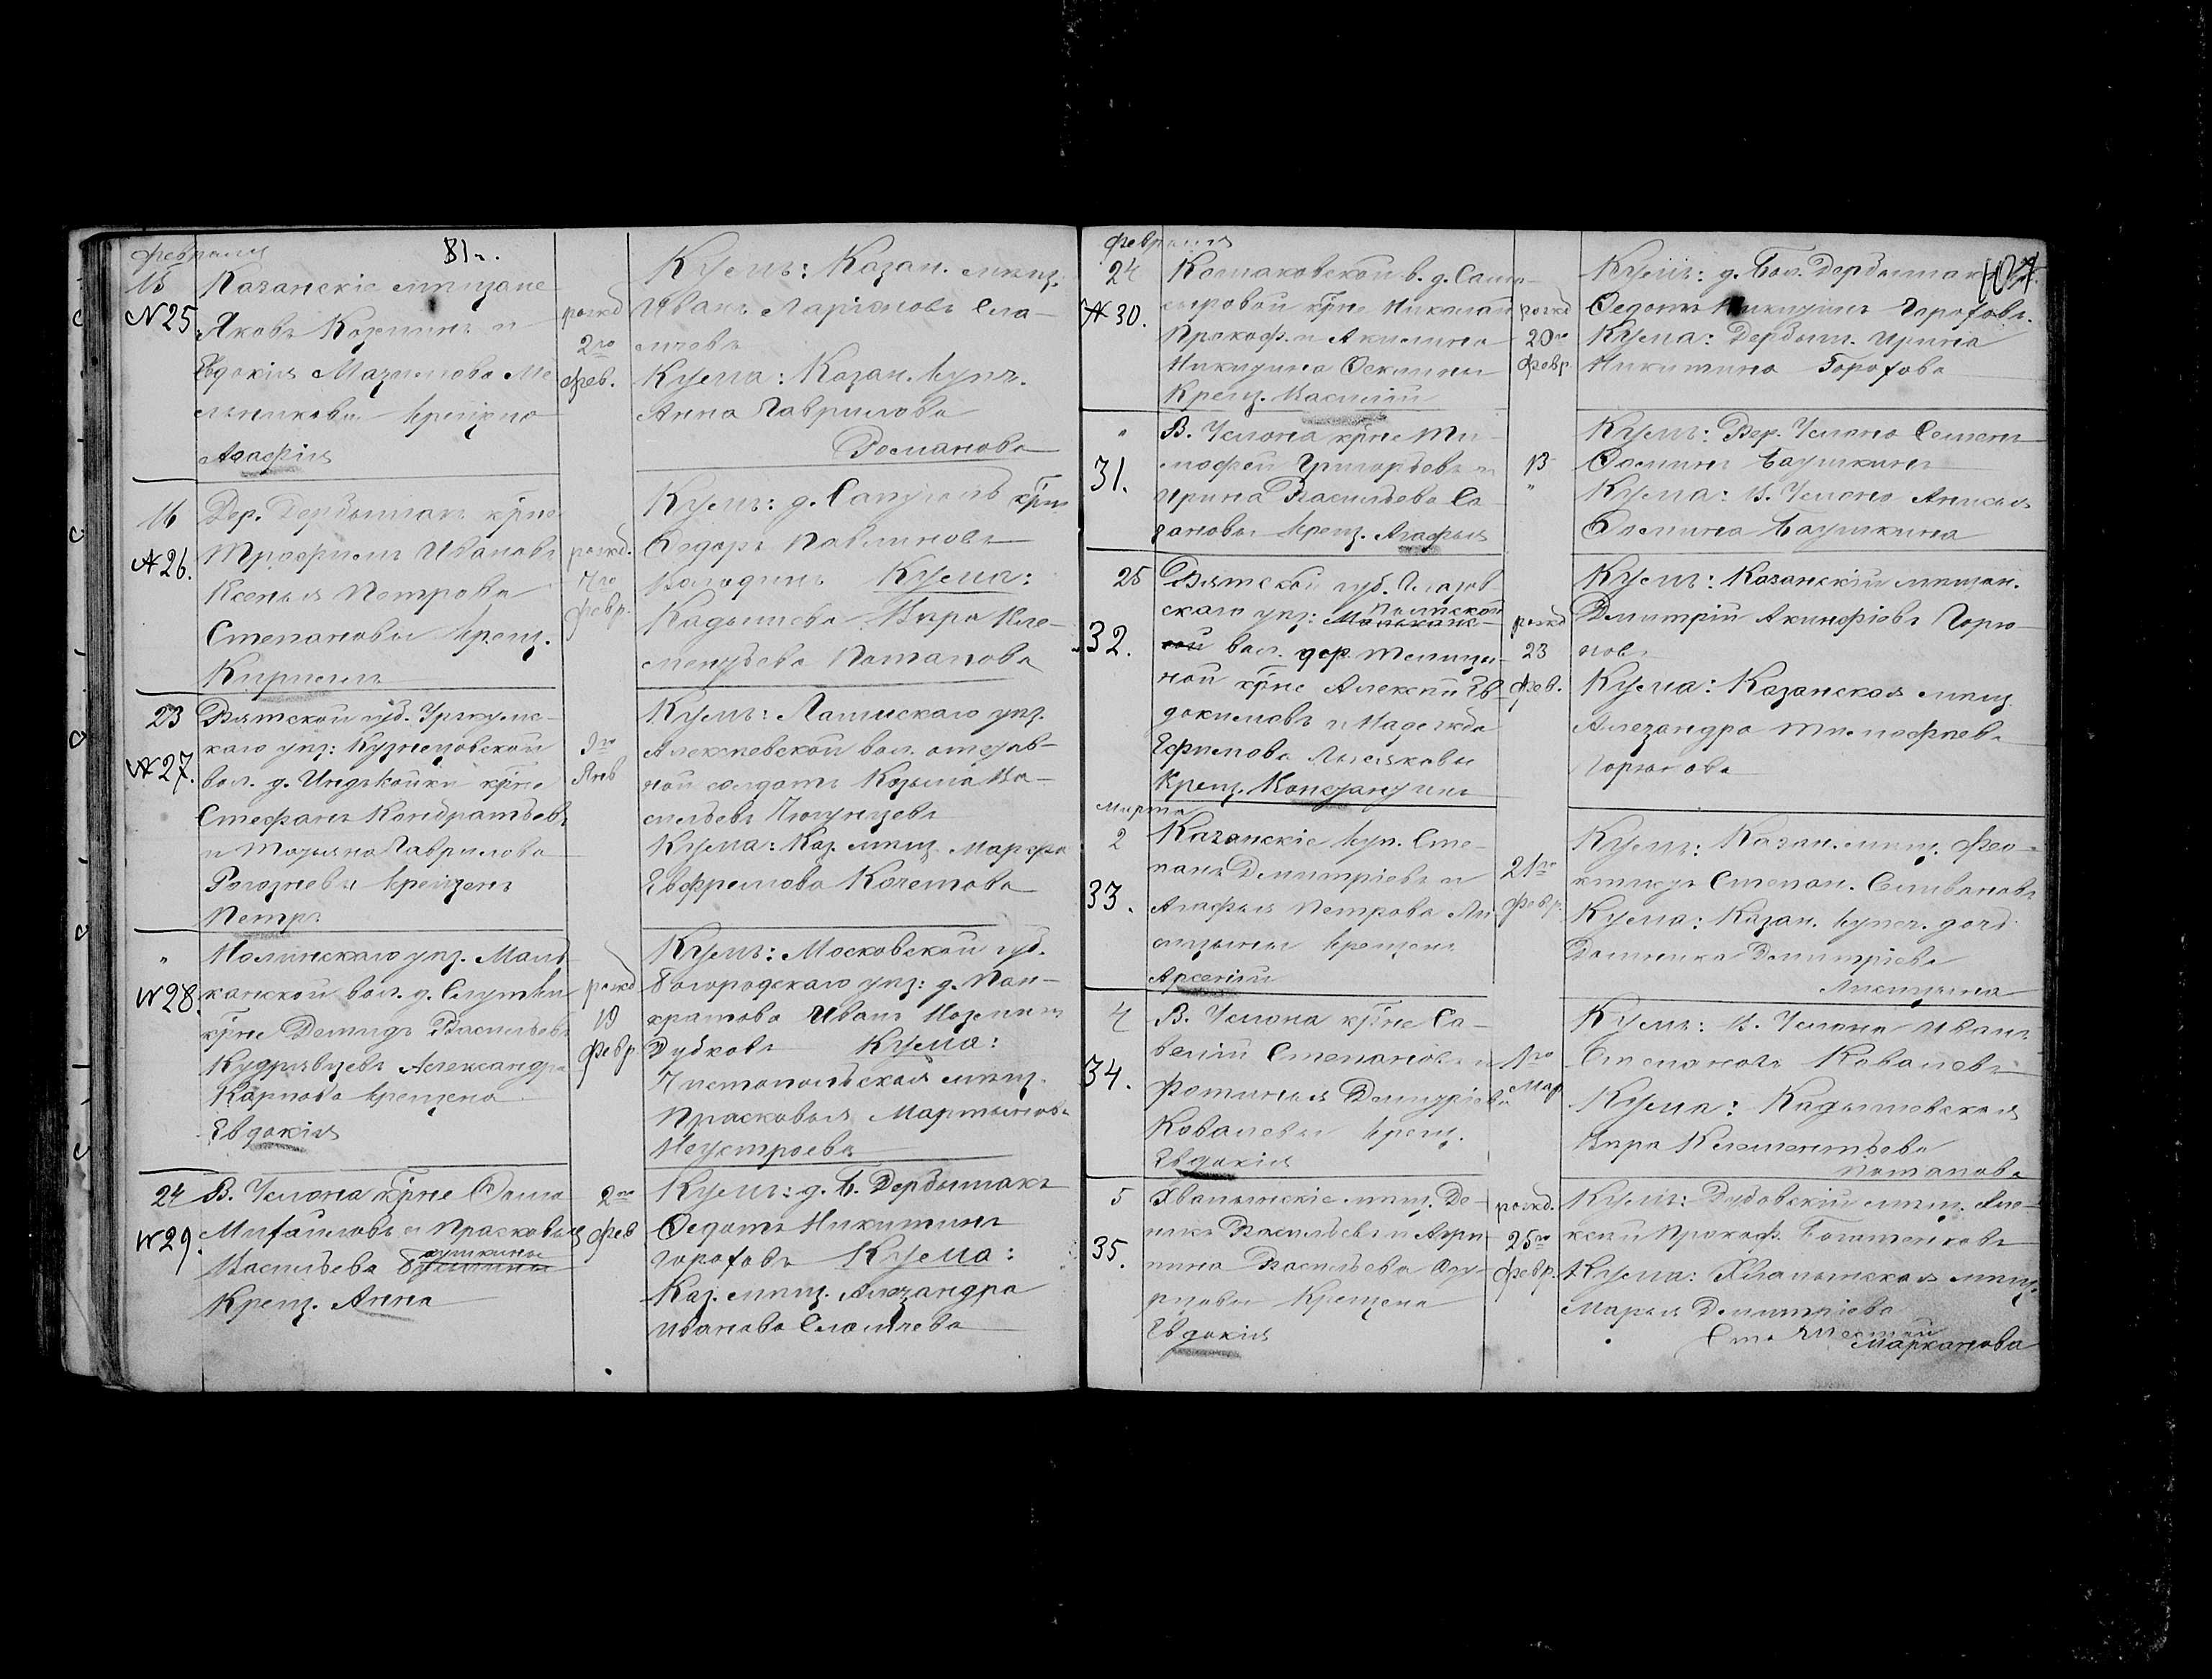 февраля
81 г.
15
№ 25
Казанскіе мѣщане
Яковъ Козминъ и
Евдокія Мазимова Ме
льниковы крещено
Агафія
рожд
2го
фев.
Кумъ: Казан. мѣщ.
Иванъ Ларіоновъ Сла-
мчевъ
Кума: Казан. купч.
Анна Гаврилова
Романова
16
№ 26.
Дер. Дербышлак крне
Трофимъ Ивановъ
Ксенья Петрова
Степановы крещ.
Кириллъ
рожд.
7го
февр.
Кумъ: д. Сапуголь крн
Ѳедоръ Павлиновъ
Володинъ Кума:
Кадышева Вѣра Кле-
ментьева Потапова
23
№ 27.
Вятской губ. Уржумс-
каго уѣз: Кузнецовской
вол. д. Индѣкойки крне
Стефанъ Кондратьевъ
и Татьяна Гаврилова
Рогозневы крещенъ
Петръ
9го
Янв
Кумъ: Лаишскаго уѣз.
Алексѣевской вол. отстав-
ной солдатъ Козьма Ва-
сильевъ
Кума: Каз. мѣщ. Марфа
Евфремова Кочетова
"
№ 28.
Малмыжскаго уѣз. Мал
канской вол. д. Слутки
крне Демидъ Васильевъ
Кудрявцевъ Александра
Карпова крещена
Евдокія
рожд
19
февр
Кумъ: Московской губ.
Богородскаго уѣз: д. Пан-
кратова Иванъ Козминъ
Дудковъ Кума:
Чистопольская мѣщ.
Прасковья Мартынова
Неустроева
24
№ 29.
В. Услона крне Ѳома
Михайловъ и Прасковья
Васильева Баушкины
Крещ. Анна
2го
фев
Кумъ: д. Б. Дербышлакъ
Ѳедотъ Никитинъ
Гороховъ Кума:
Каз. мѣщ. Александра
Иванова Сломчева
февраля
24
№ 30.
Комаковской в. д. Само-
сыровой крне Николай
Прокоф. и Акилина
Никитина Ѳомины
Крещ. Василій
рожд
20го
февр
Кумъ: д. Бол. Дербышлак
Ѳедотъ Никитинъ Гороховъ.
Кума: Дербыш. Ирина
Никитина Горохова
"
31.
В. Услона крне Ти-
мофей Григорьевъ и
Ирина Васильева Са-
зановы крещ. Агафья
13
"
Кумъ: Вер. Услона Семенъ
Ѳоминъ Баушкинъ
Кума: В. Услона Анисья
Ѳомина Баушкина
25
32.
Вятской губ. Глазов
скаго уѣз:
вол. дер.
ной крне Алексѣй Ев
докимовъ и Надежда
Ефимова Лысяковы
Крещ. Константинъ
рожд
23
фев.
Кумъ: Казанскій мѣщан.
Дмитрій Акинфіевъ Горю
новъ
Кума: Казанская мѣщ.
Александра Тимофеев.
Горюнова
марта
2
33.
Казанскіе куп. Сте-
панъ Дмитріевъ и
Агафья Петрова Ли-
сицыны крещенъ
Арсеній
21го
февр.
Кумъ: Казан. мѣщ. Фео-
ктистъ Степан. Селивановъ
Кума: Казан. купеч. доч.
Домника Дмитріева
Лисицына
4
34.
В. Услона крне Са-
велій Степановъ и
Фотинья Дмитріева
Ковалевы крещ.
Евдокія
1го
мар
Кумъ: В. Услона Иванъ
Степановъ Ковалевъ
Кума: Кадышевская
Вѣра Клементьева
Потапова
5
35.
Хвалынскіе мѣщ. Де-
нисъ Васильевъ и Агри-
пина Васильева Огу-
рцовы Крещена
Евдокія
рожд.
25го
февр.
Кумъ: Дубовскій мѣщ. Але-
ксѣй Прокоф. Богатенковъ
Кума: Хвалынская мѣщ.
Марья Дмитріева
Марканова